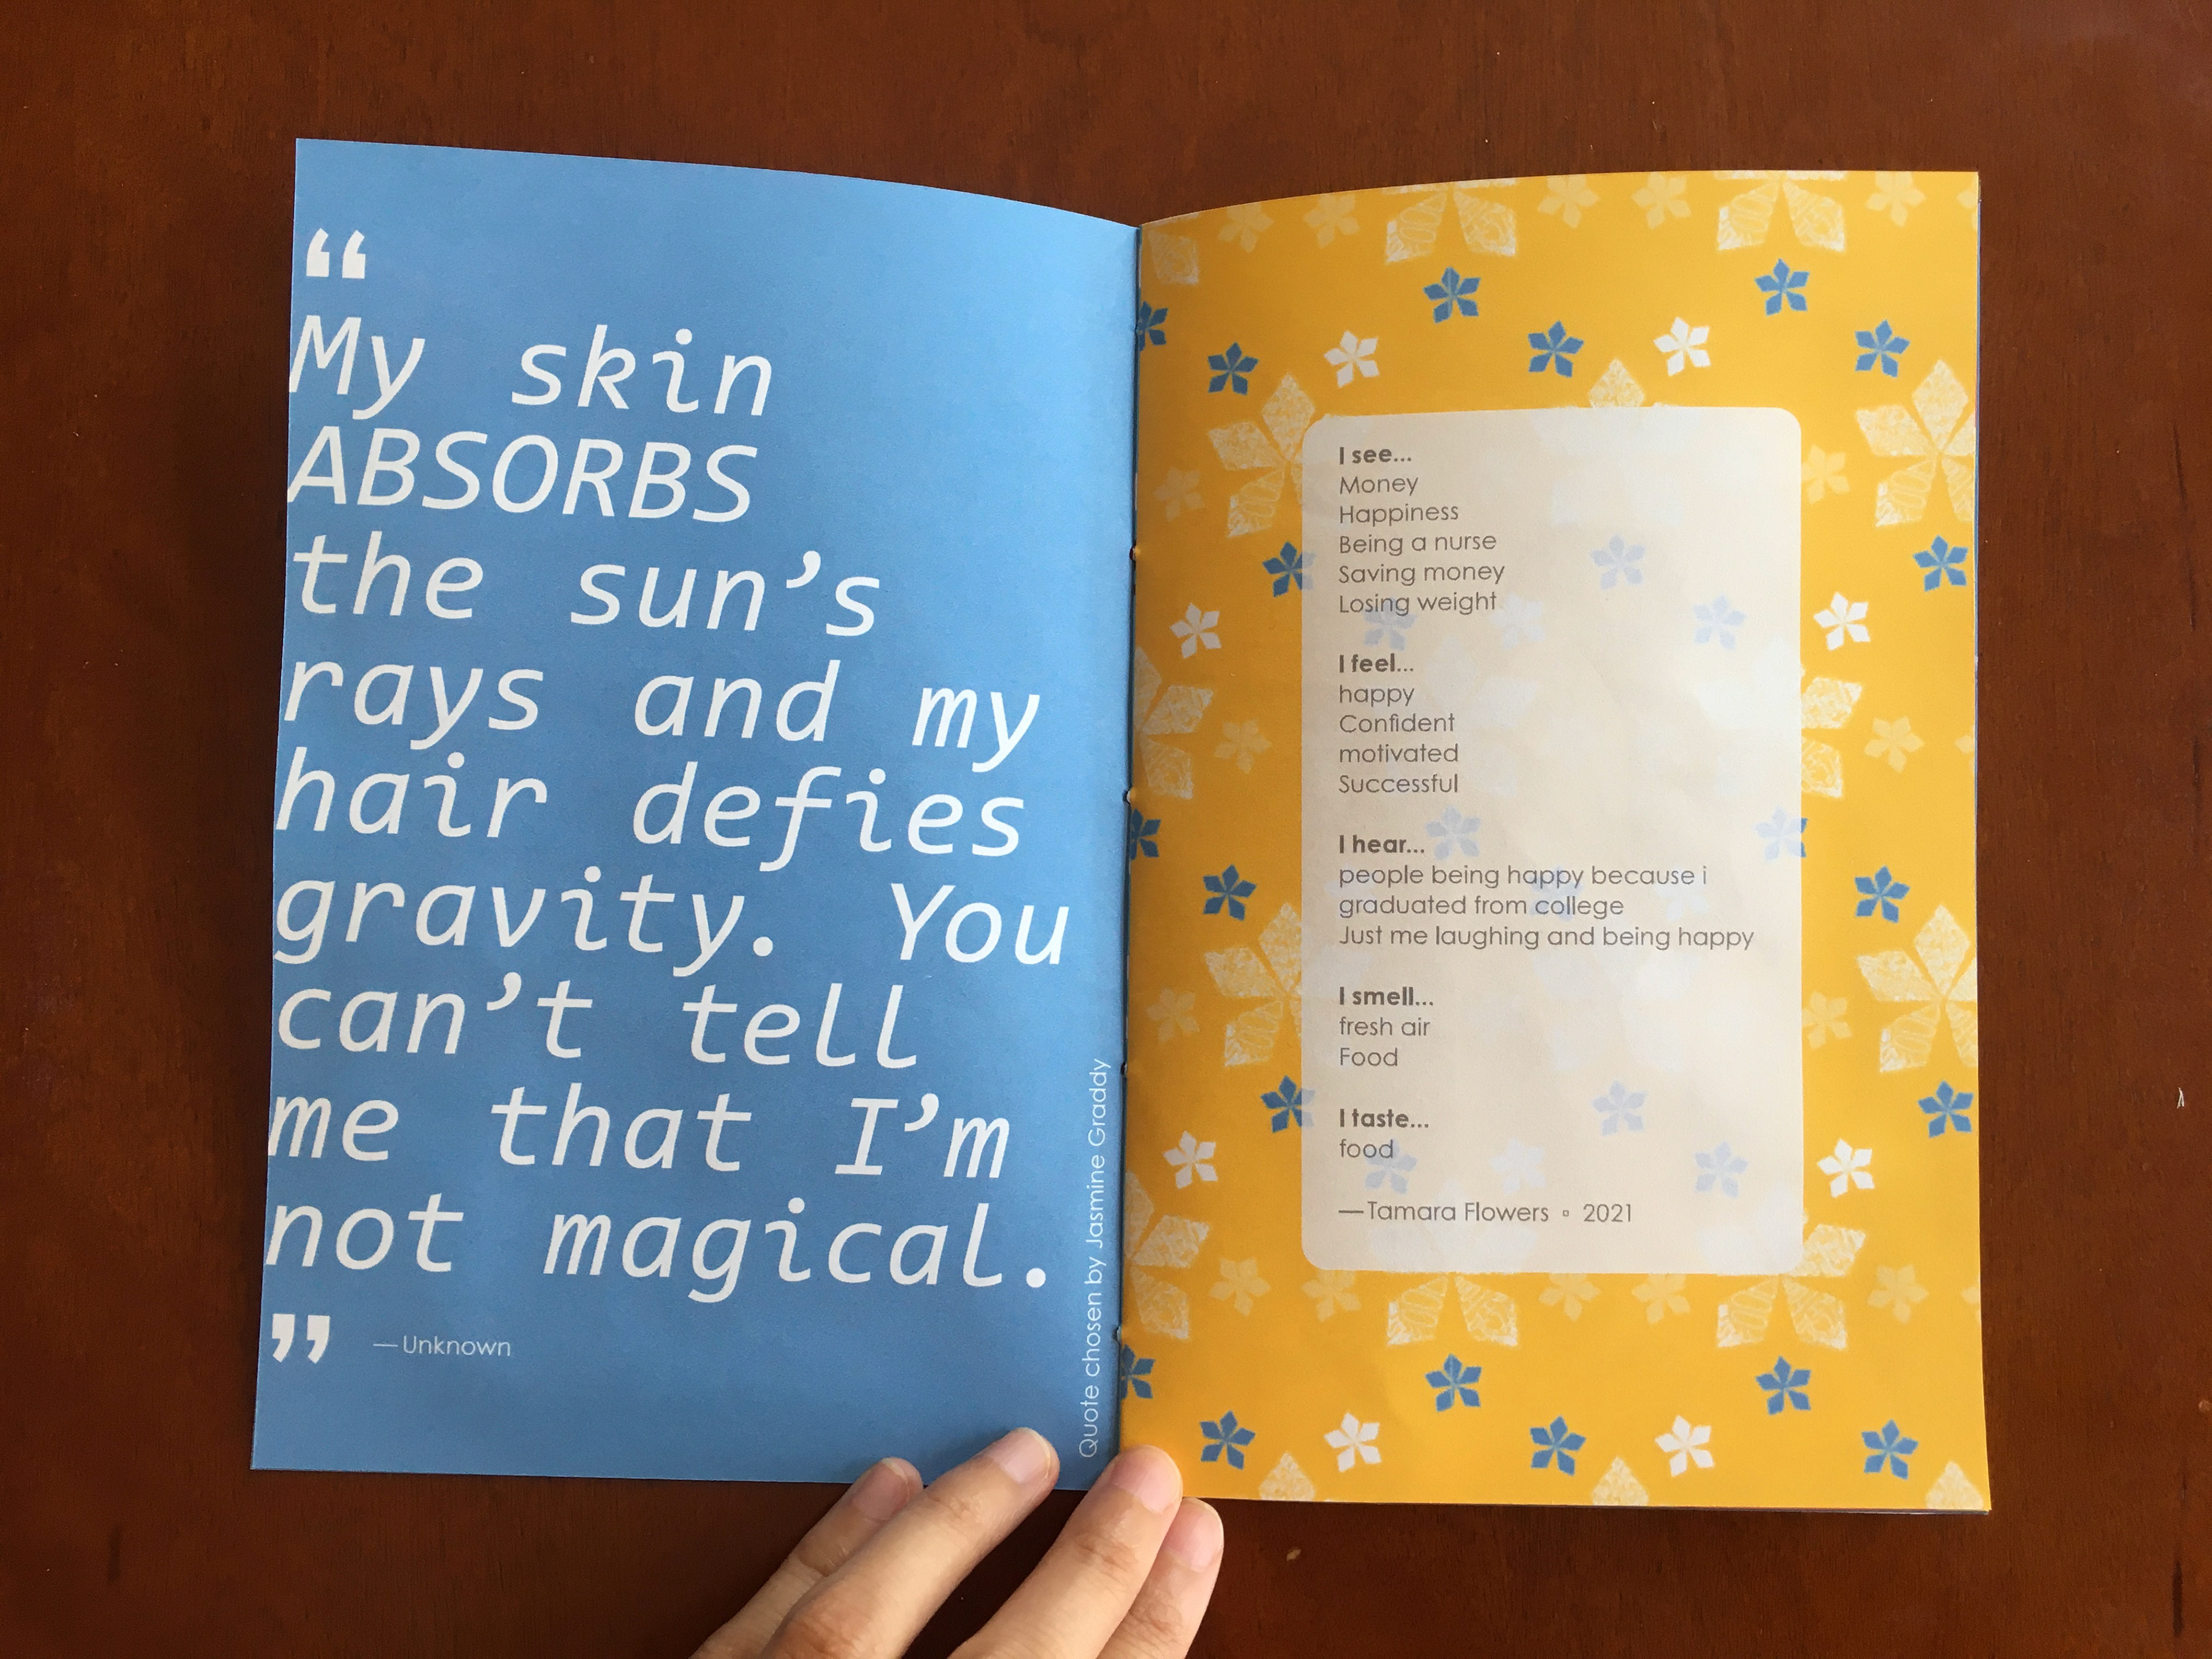 “
My skin
ABSORBS
the sun’s
rays and my
hair defies
gravity. You
can’t tell
me that I’m
not magical.
”
—Unknown
Quote chosen by Jasmine Graddy
I see...
Money
Happiness
Being a nurse
Saving money
Losing weight
I feel...
happy
Confident
motivated
Successful
I hear...
people being happy because i
graduated from college
Just me laughing and being happy
I smell...
fresh air
Food
I taste...
food
—Tamara Flowers ▫ 2021